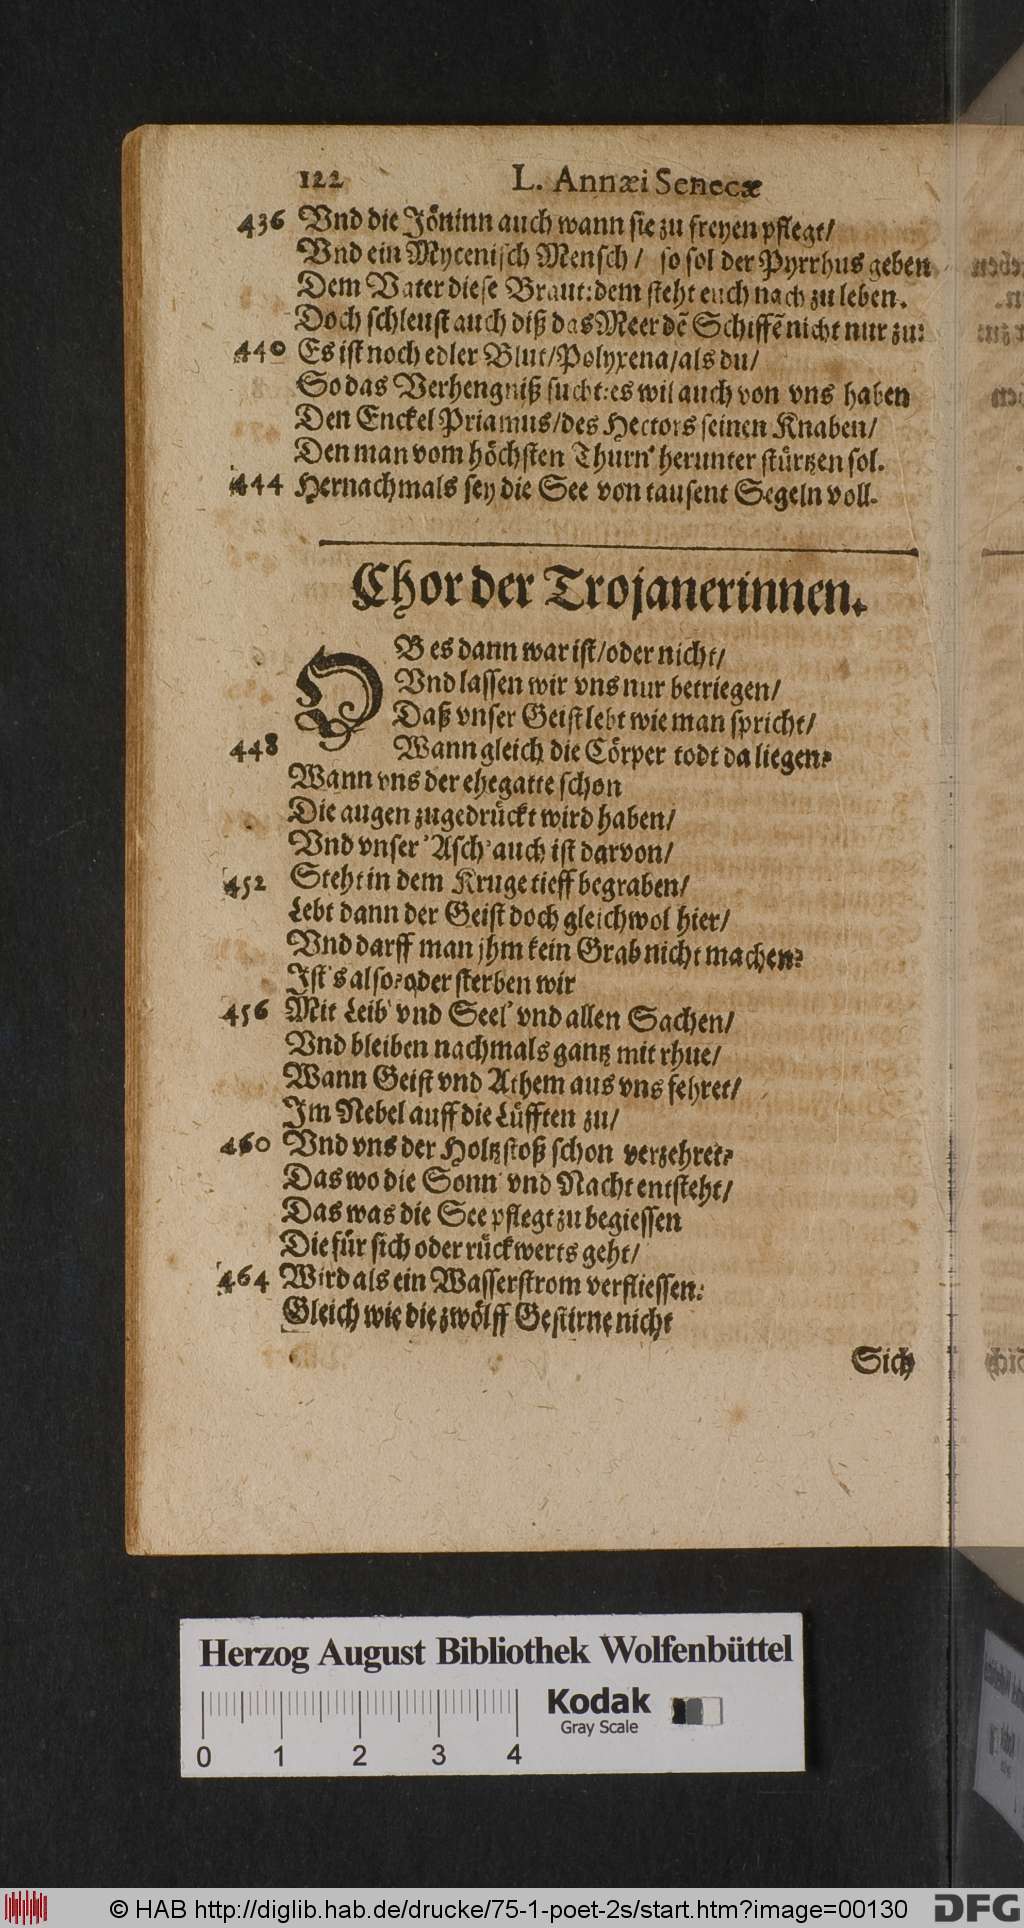 122 L. Annæi Senecæ
436 Vnd die Jöninn auch wann sie zu freyen pflegt/
Vnd ein Mycenisch Mensch / so sol der Pyrrhus geben
Dem Vater diese Braut: dem steht euch nach zu leben.
Doch schleust auch diß das Meer dē Schiffē nicht nur zu:
440 Es ist noch edler Blut/Polyxena/als du/
So das Verhengniß sucht: es wil auch von vns haben
Den Enckel Priamus/des Hectors seinen Knaben/
Den man vom höchsten Thurn' herunter stürtzen sol.
444 Hernachmals sey die See von tausent Segeln voll.
Chor der Trojanerinnen.
OB es dann war ist/oder nicht/
Vnd lassen wir vns nur betriegen/
Daß vnser Geist lebt wie man spricht/
448 Wann gleich die Cörper todt da liegen?
Wann vns der ehegatte schon
Die augen zugedrückt wird haben/
Vnd vnser 'Asch' auch ist darvon/
452 Steht in dem Kruge tieff begraben/
Lebt dann der Geist doch gleichwol hier/
Vnd darff man jhm kein Grab nicht machen?
Ist's also? oder sterben wir
456 Mit Leib' vnd Seel' vnd allen Sachen/
Vnd bleiben nachmals gantz mit rhue/
Wann Geist vnd Athem aus vns fehret/
Im Nebel auff die Lüfften zu/
460 Vnd vns der Holtzstoß schon verzehret?
Das wo die Sonn' vnd Nacht entsteht/
Das was die See pflegt zu begiessen
Die für sich oder rückwerts geht/
464 Wird als ein Wasserstrom verfliessen:
Gleich wie die zwölff Gestirne nicht
Sich
Herzog August Bibliothek Wolfenbüttel
Kodak
Gray Scale
0 1 2 3 4
© HAB http://diglib.hab.de/drucke/75-1-poet-2s/start.htm?image=00130
DFG